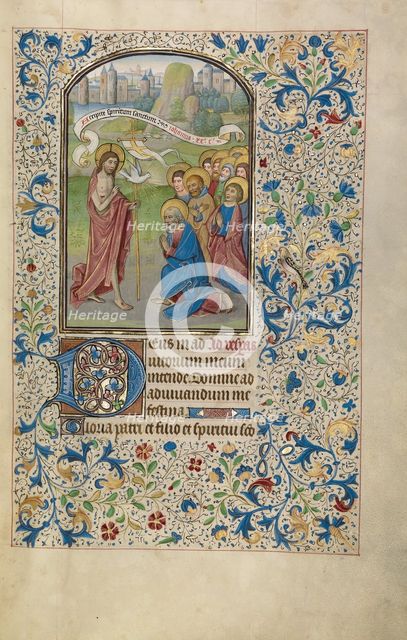 Accipite spiritum sanctum
Deus in ad Ad vesperas
iutorium meum
intende Domine ad
adiuuandum me
festina
Gloria patri et filio et spiritui sco
Heritage
Heritage
Heritage
Heritage
Heritage
Heritage